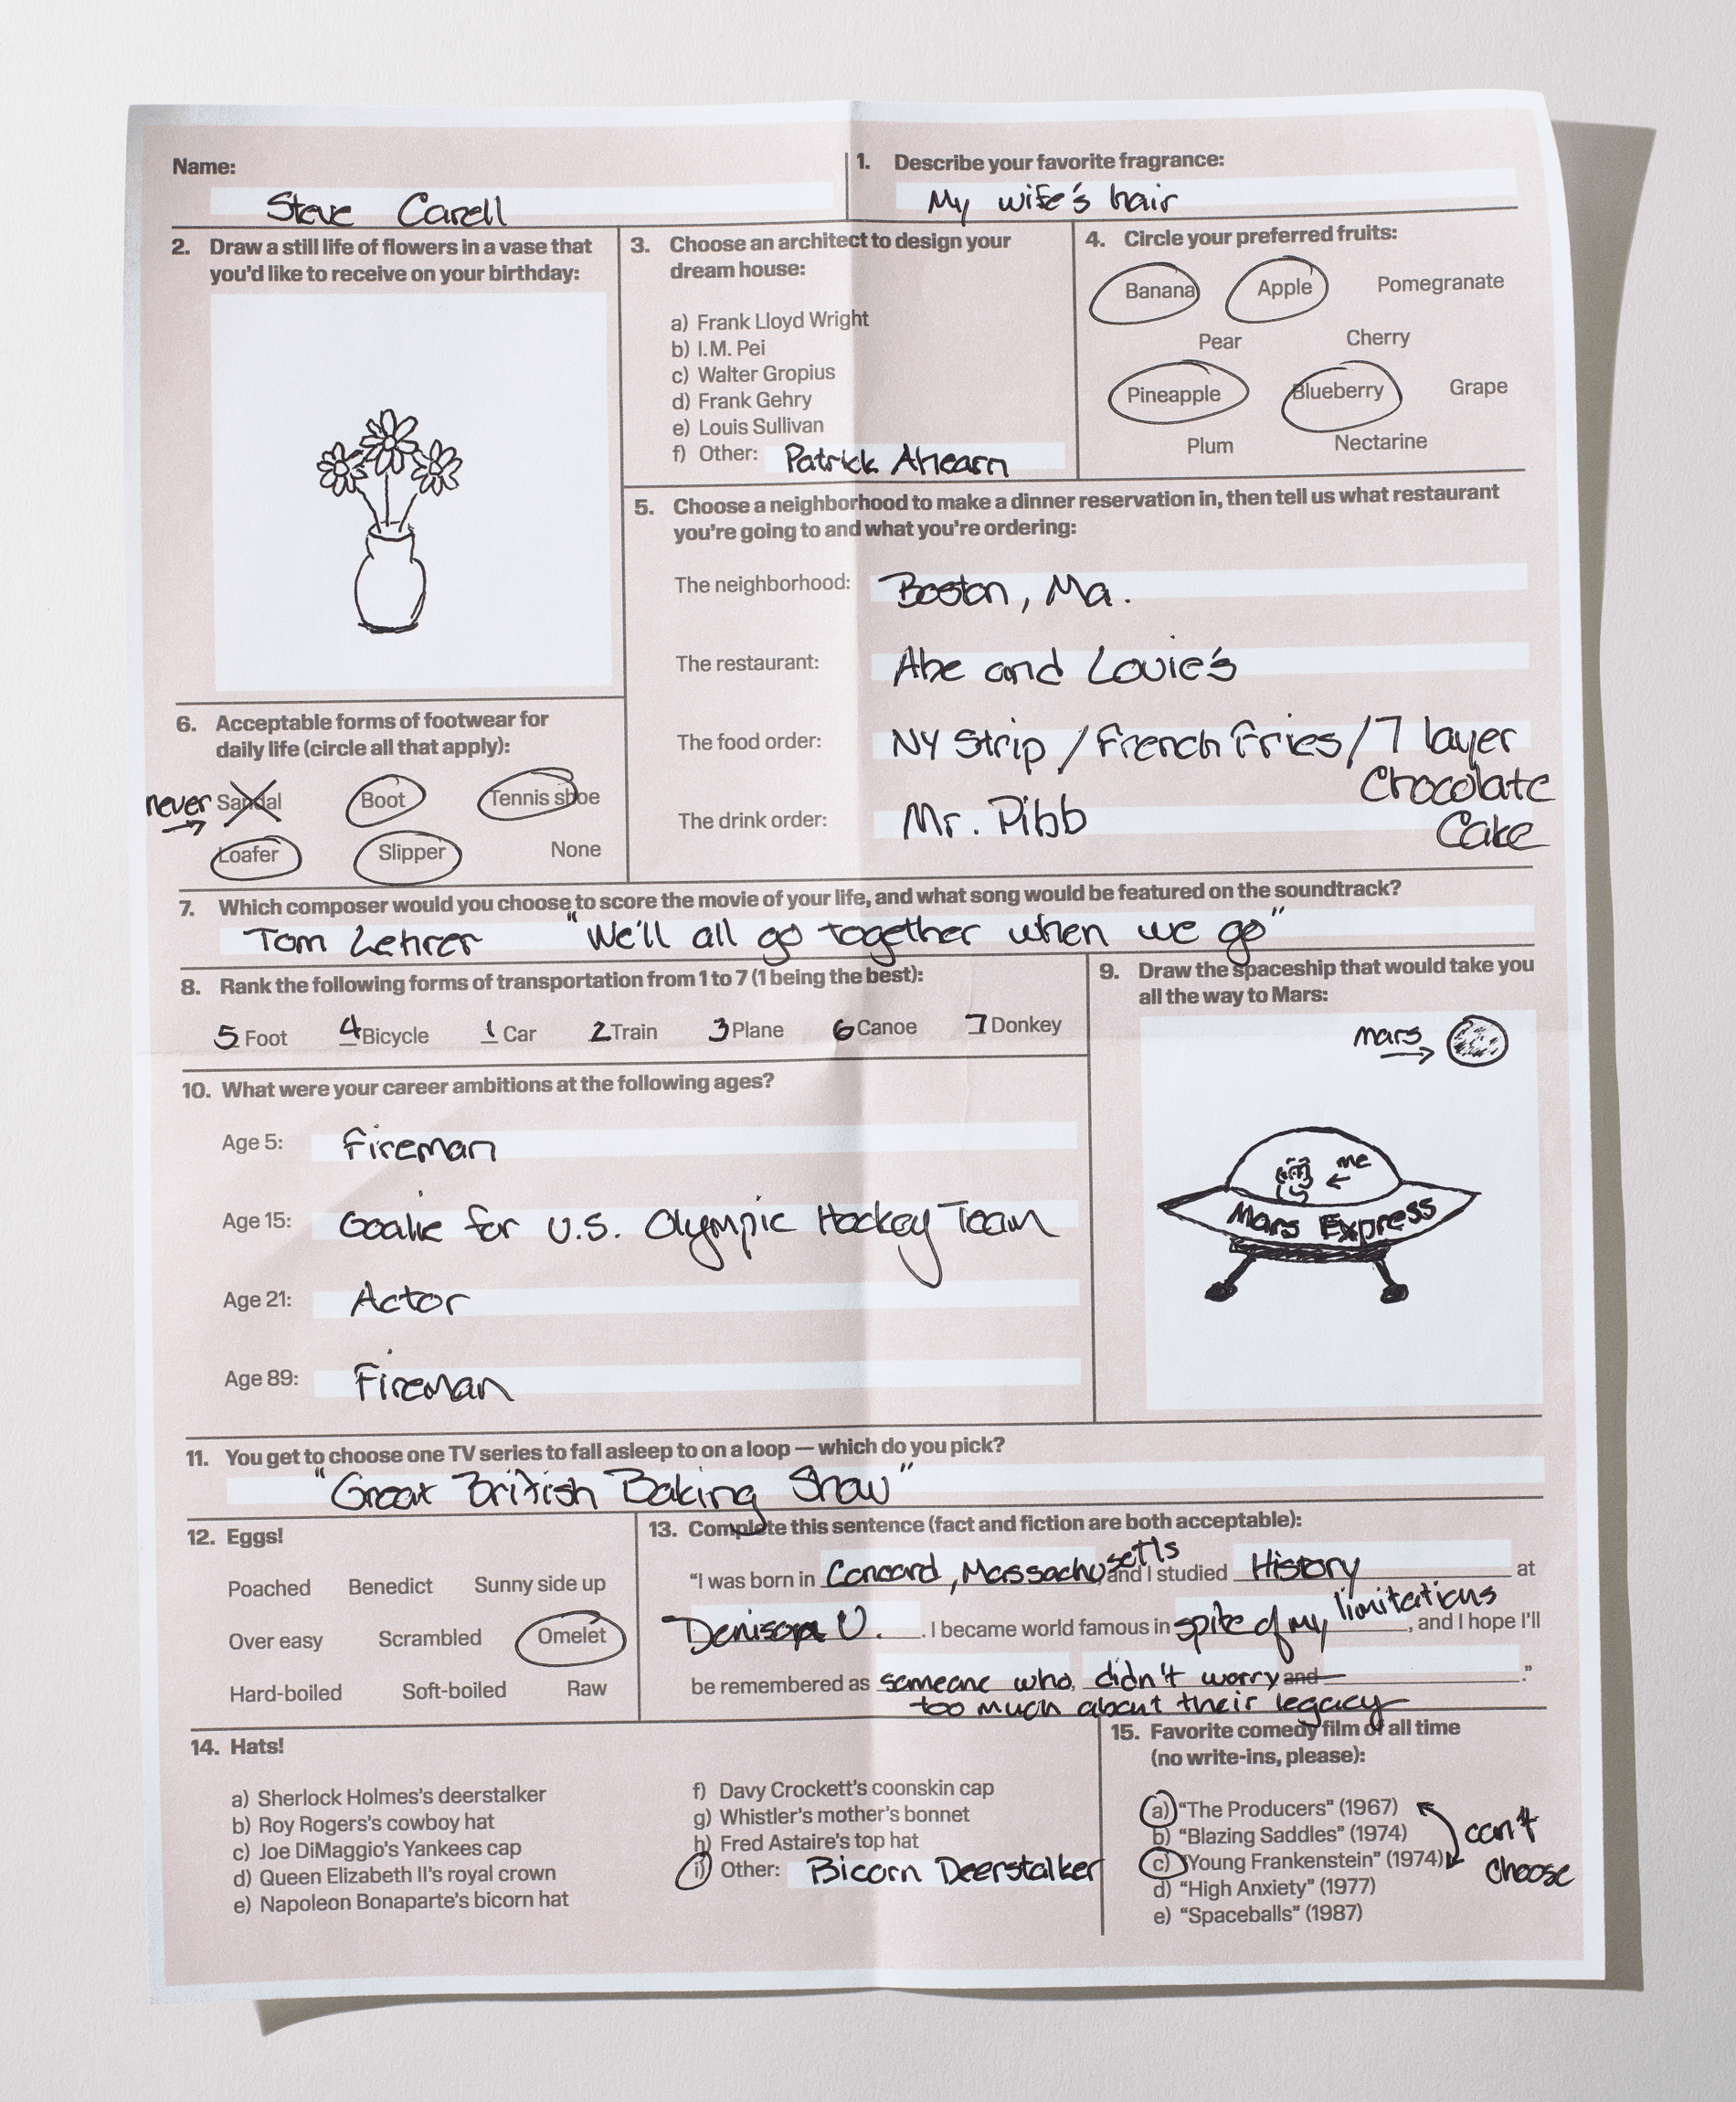 Name:
Steve Carell
1. Describe your favorite fragrance:
My wife's hair
2. Draw a still life of flowers in a vase that
you'd like to receive on your birthday:
3. Choose an architect to design your
dream house:
a) Frank Lloyd Wright
b) I.M. Pei
c) Walter Gropius
d) Frank Gehry
e) Louis Sullivan
f) Other: Patrick Ahearn
4. Circle your preferred fruits:
Banana Apple Pomegranate
Pear Cherry
Pineapple Blueberry Grape
Plum Nectarine
5. Choose a neighborhood to make a dinner reservation in, then tell us what restaurant
you're going to and what you're ordering:
The neighborhood: Boston, Ma.
The restaurant: Abe and Louie's
The food order: NY Strip / French Fries / 7 layer
Chocolate
Cake
The drink order: Mr. Pibb
6. Acceptable forms of footwear for
daily life (circle all that apply):
never → Sandal Boot Tennis shoe
Loafer Slipper None
7. Which composer would you choose to score the movie of your life, and what song would be featured on the soundtrack?
Tom Lehrer "We'll all go together when we go"
8. Rank the following forms of transportation from 1 to 7 (1 being the best):
5 Foot 4 Bicycle 1 Car 2 Train 3 Plane 6 Canoe 7 Donkey
9. Draw the spaceship that would take you
all the way to Mars:
mars →
me ←
Mars Express
10. What were your career ambitions at the following ages?
Age 5: Fireman
Age 15: Goalie for U.S. Olympic Hockey Team
Age 21: Actor
Age 89: Fireman
11. You get to choose one TV series to fall asleep to on a loop — which do you pick?
"Great British Baking Show"
12. Eggs!
Poached Benedict Sunny side up
Over easy Scrambled Omelet
Hard-boiled Soft-boiled Raw
13. Complete this sentence (fact and fiction are both acceptable):
"I was born in Concord, Massachusetts, and I studied History at
Denison U. . I became world famous in spite of my limitations, and I hope I'll
be remembered as someone who, didn't worry and ."
too much about their legacy
14. Hats!
a) Sherlock Holmes's deerstalker
b) Roy Rogers's cowboy hat
c) Joe DiMaggio's Yankees cap
d) Queen Elizabeth II's royal crown
e) Napoleon Bonaparte's bicorn hat
f) Davy Crockett's coonskin cap
g) Whistler's mother's bonnet
h) Fred Astaire's top hat
i) Other: Bicorn Deerstalker
15. Favorite comedy film of all time
(no write-ins, please):
a) "The Producers" (1967)
b) "Blazing Saddles" (1974)
c) "Young Frankenstein" (1974)
d) "High Anxiety" (1977)
e) "Spaceballs" (1987)
can't
choose